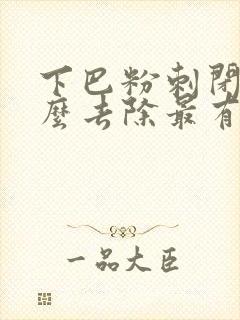 下巴粉刺閉
麼去除最有
一品大臣